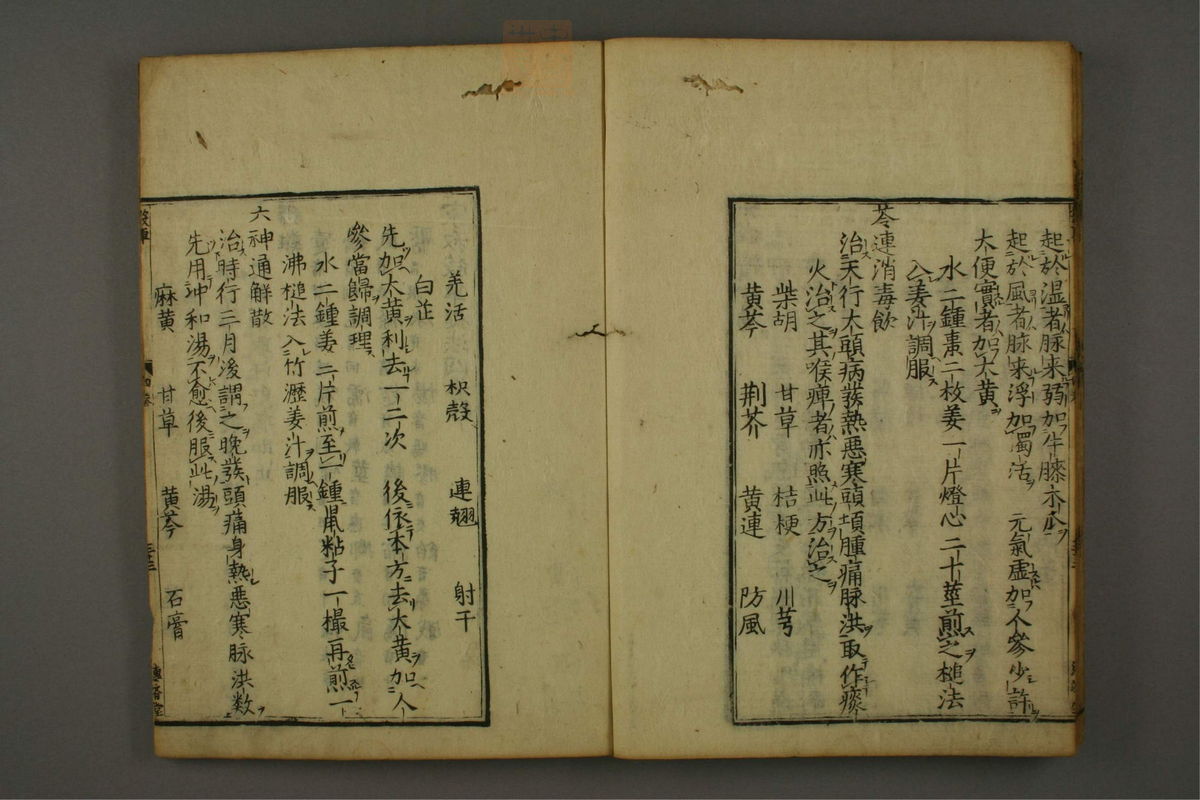 起於湿者脉来弱加牛膝木瓜
起於風者脉来浮加獨活　元氣虚加人參少許
大便實者加大黄
水二鍾棗二枚姜一片燈心二十莖煎之槌法
入姜汁調服
芩連消毒飲
治天行大頭病發熱惡寒頭項腫痛脉洪取作痰
火治之其喉痺者亦照此方治之
柴胡　甘草　桔梗　川芎
黄芩　荆芥　黄連　防風
羌活　枳殻　連翹　射干
白芷
先加大黄利去一二次　後依本方去大黄加人
參當歸調理
水二鍾姜三片煎至一鍾鼠粘子一撮再煎一
沸槌法入竹瀝姜汁調服
六神通解散
治時行三月後謂之晚發頭痛身熱惡寒脉洪数
先用冲和湯不愈後服此湯
麻黄　甘草　黄芩　石膏